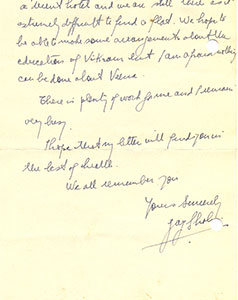 hotel and we are still
extremely difficult to find a flat. We hope to
be able to make some arrangements about the
education of Vikram but I am afraid nothing
can be done about Veena.
There is plenty of work for me and I remain
very busy.
I hope that my letter will find you in
the best of health.
We all remember you
Yours Sincerely